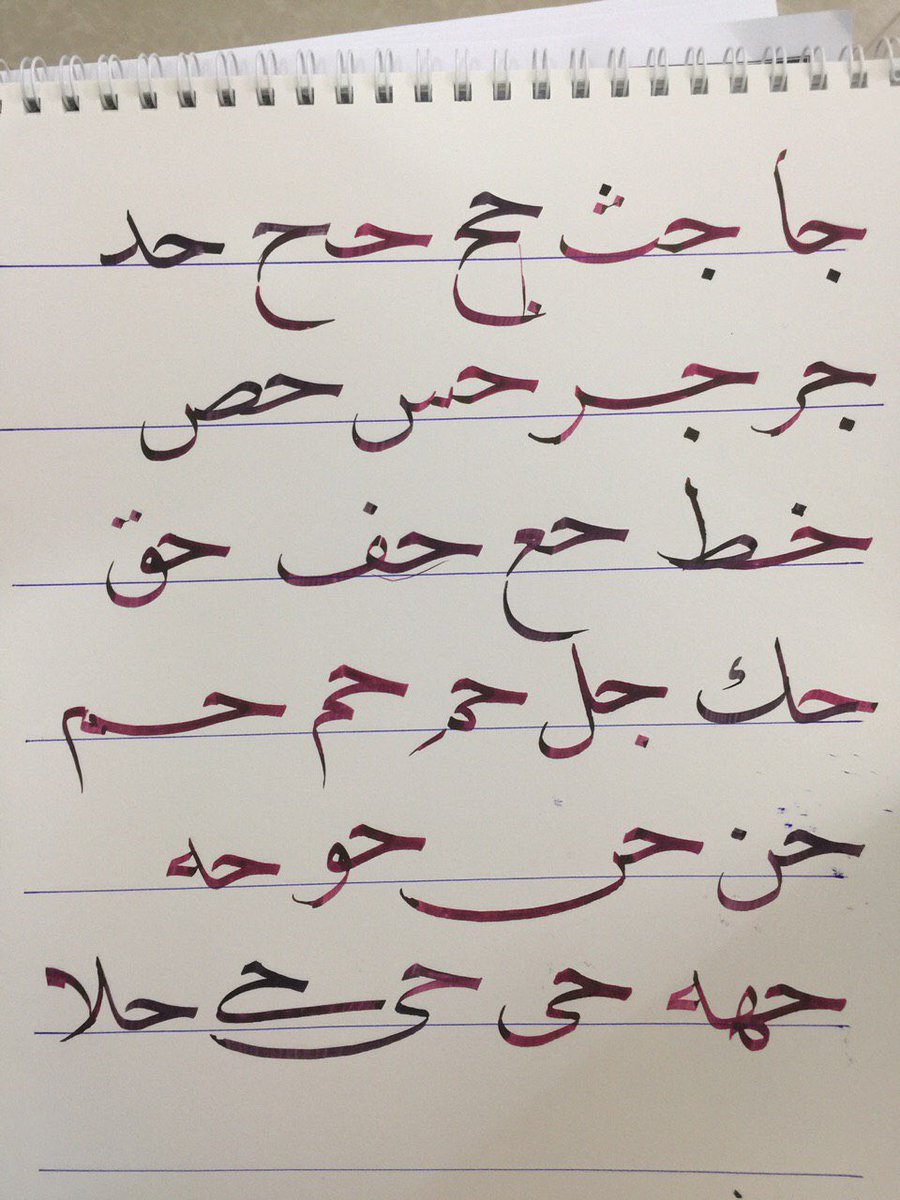 جا جث حج حح حد
جر جر حس حص
خط حع حف حق
حك جل حم حم حم
حن حں حو حه
جهه حى حى حے حلا